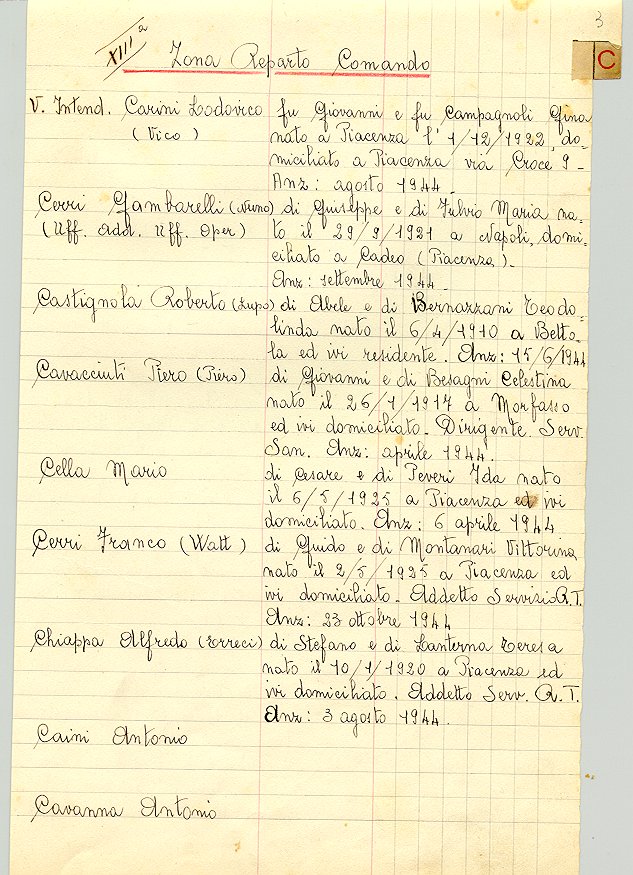 3
XIIIa Zona Reparto Comando
C
V. Intend. Carini Lodovico fu Giovanni e fu Campagnoli Gina
(Vico) nato a Piacenza l' 1/12/1922, do-
miciliato a Piacenza via Croce 9 -
Anz: agosto 1944.
Cerri Gambarelli (Nuno) di Giuseppe e di Fulvio Maria na-
(Uff. Add. Uff. Oper) to il 29/9/1921 a Napoli, domi-
ciliato a Cadeo (Piacenza).
Anz: settembre 1944.
Castignola Roberto (Lupo) di Abele e di Bernazzani Teodo-
linda nato il 6/4/1910 a Betto-
la ed ivi residente. Anz: 15/6/1944
Cavacciuti Piero (Piero) di Giovanni e di Besagni Celestina
nato il 26/1/1917 a Morfasso
ed ivi domiciliato. Dirigente Serv.
San. Anz: aprile 1944.
Cella Mario di Cesare e di Peveri Ida nato
il 6/5/1925 a Piacenza ed ivi
domiciliato. Anz: 6 aprile 1944
Cerri Franco (Watt) di Guido e di Montanari Vittorina
nato il 2/5/1925 a Piacenza ed
ivi domiciliato. Addetto Servizio R.T.
Anz: 23 ottobre 1944
Chiappa Alfredo (Erreci) di Stefano e di Lanterna Teresa
nato il 10/1/1920 a Piacenza ed
ivi domiciliato. Addetto Serv. R.T.
Anz: 3 agosto 1944.
Caini Antonio
Cavanna Antonio